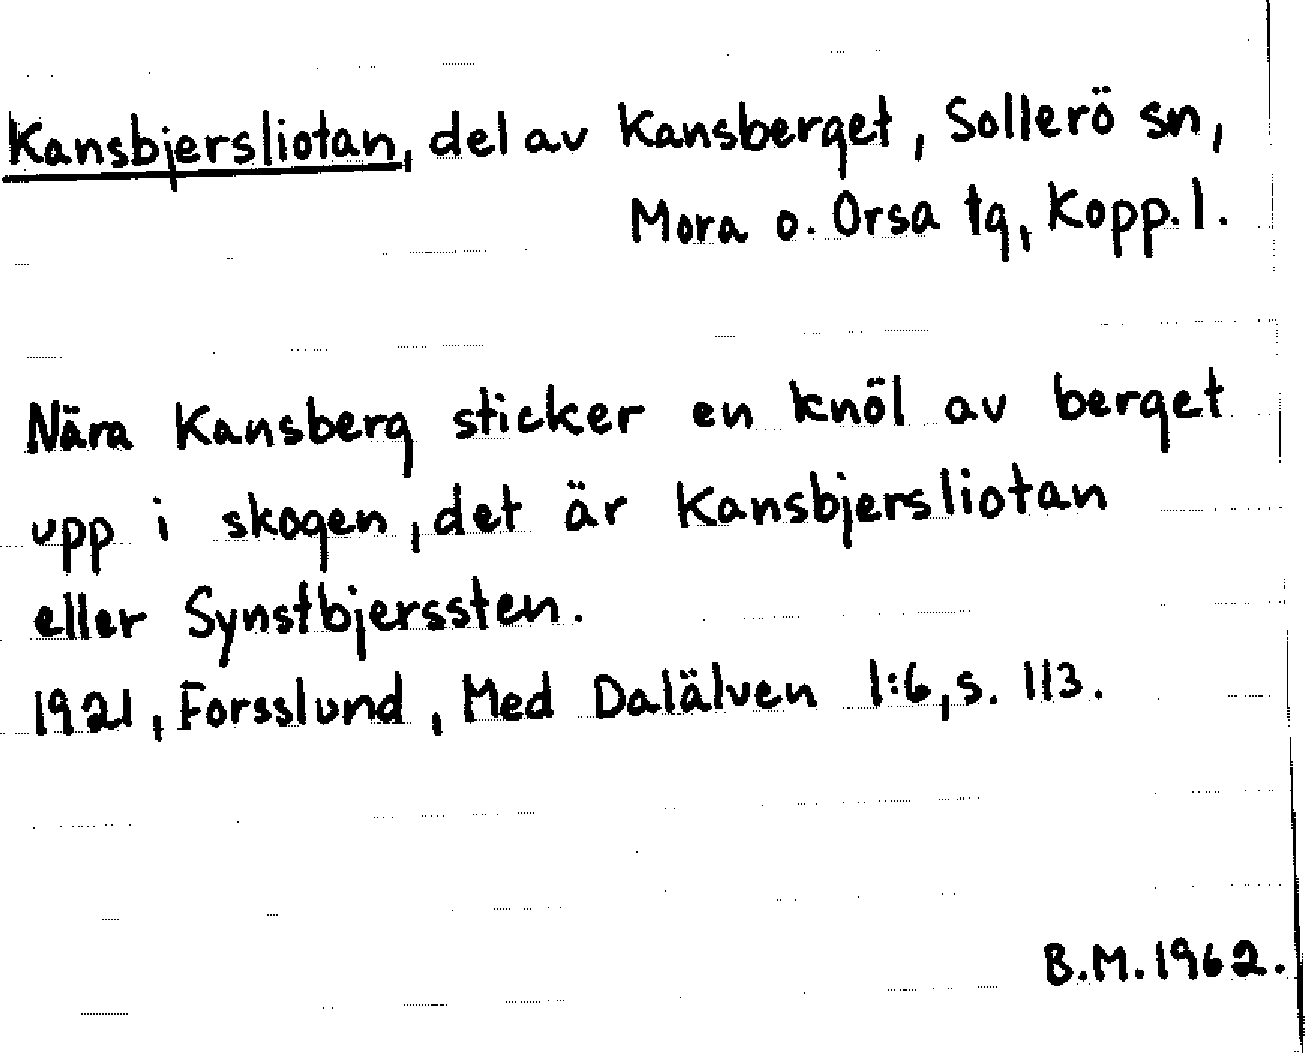 Kansbjersliotan, del av Kansberget, Sollerö sn,
Mora o. Orsa tg, Kopp. l.
Nära Kansberg sticker en knöl av berget
upp i skogen, det är Kansbjersliotan
eller Synstbjerssten.
1921, Forsslund, Med Dalälven 1:6, s. 113.
B.M. 1962.